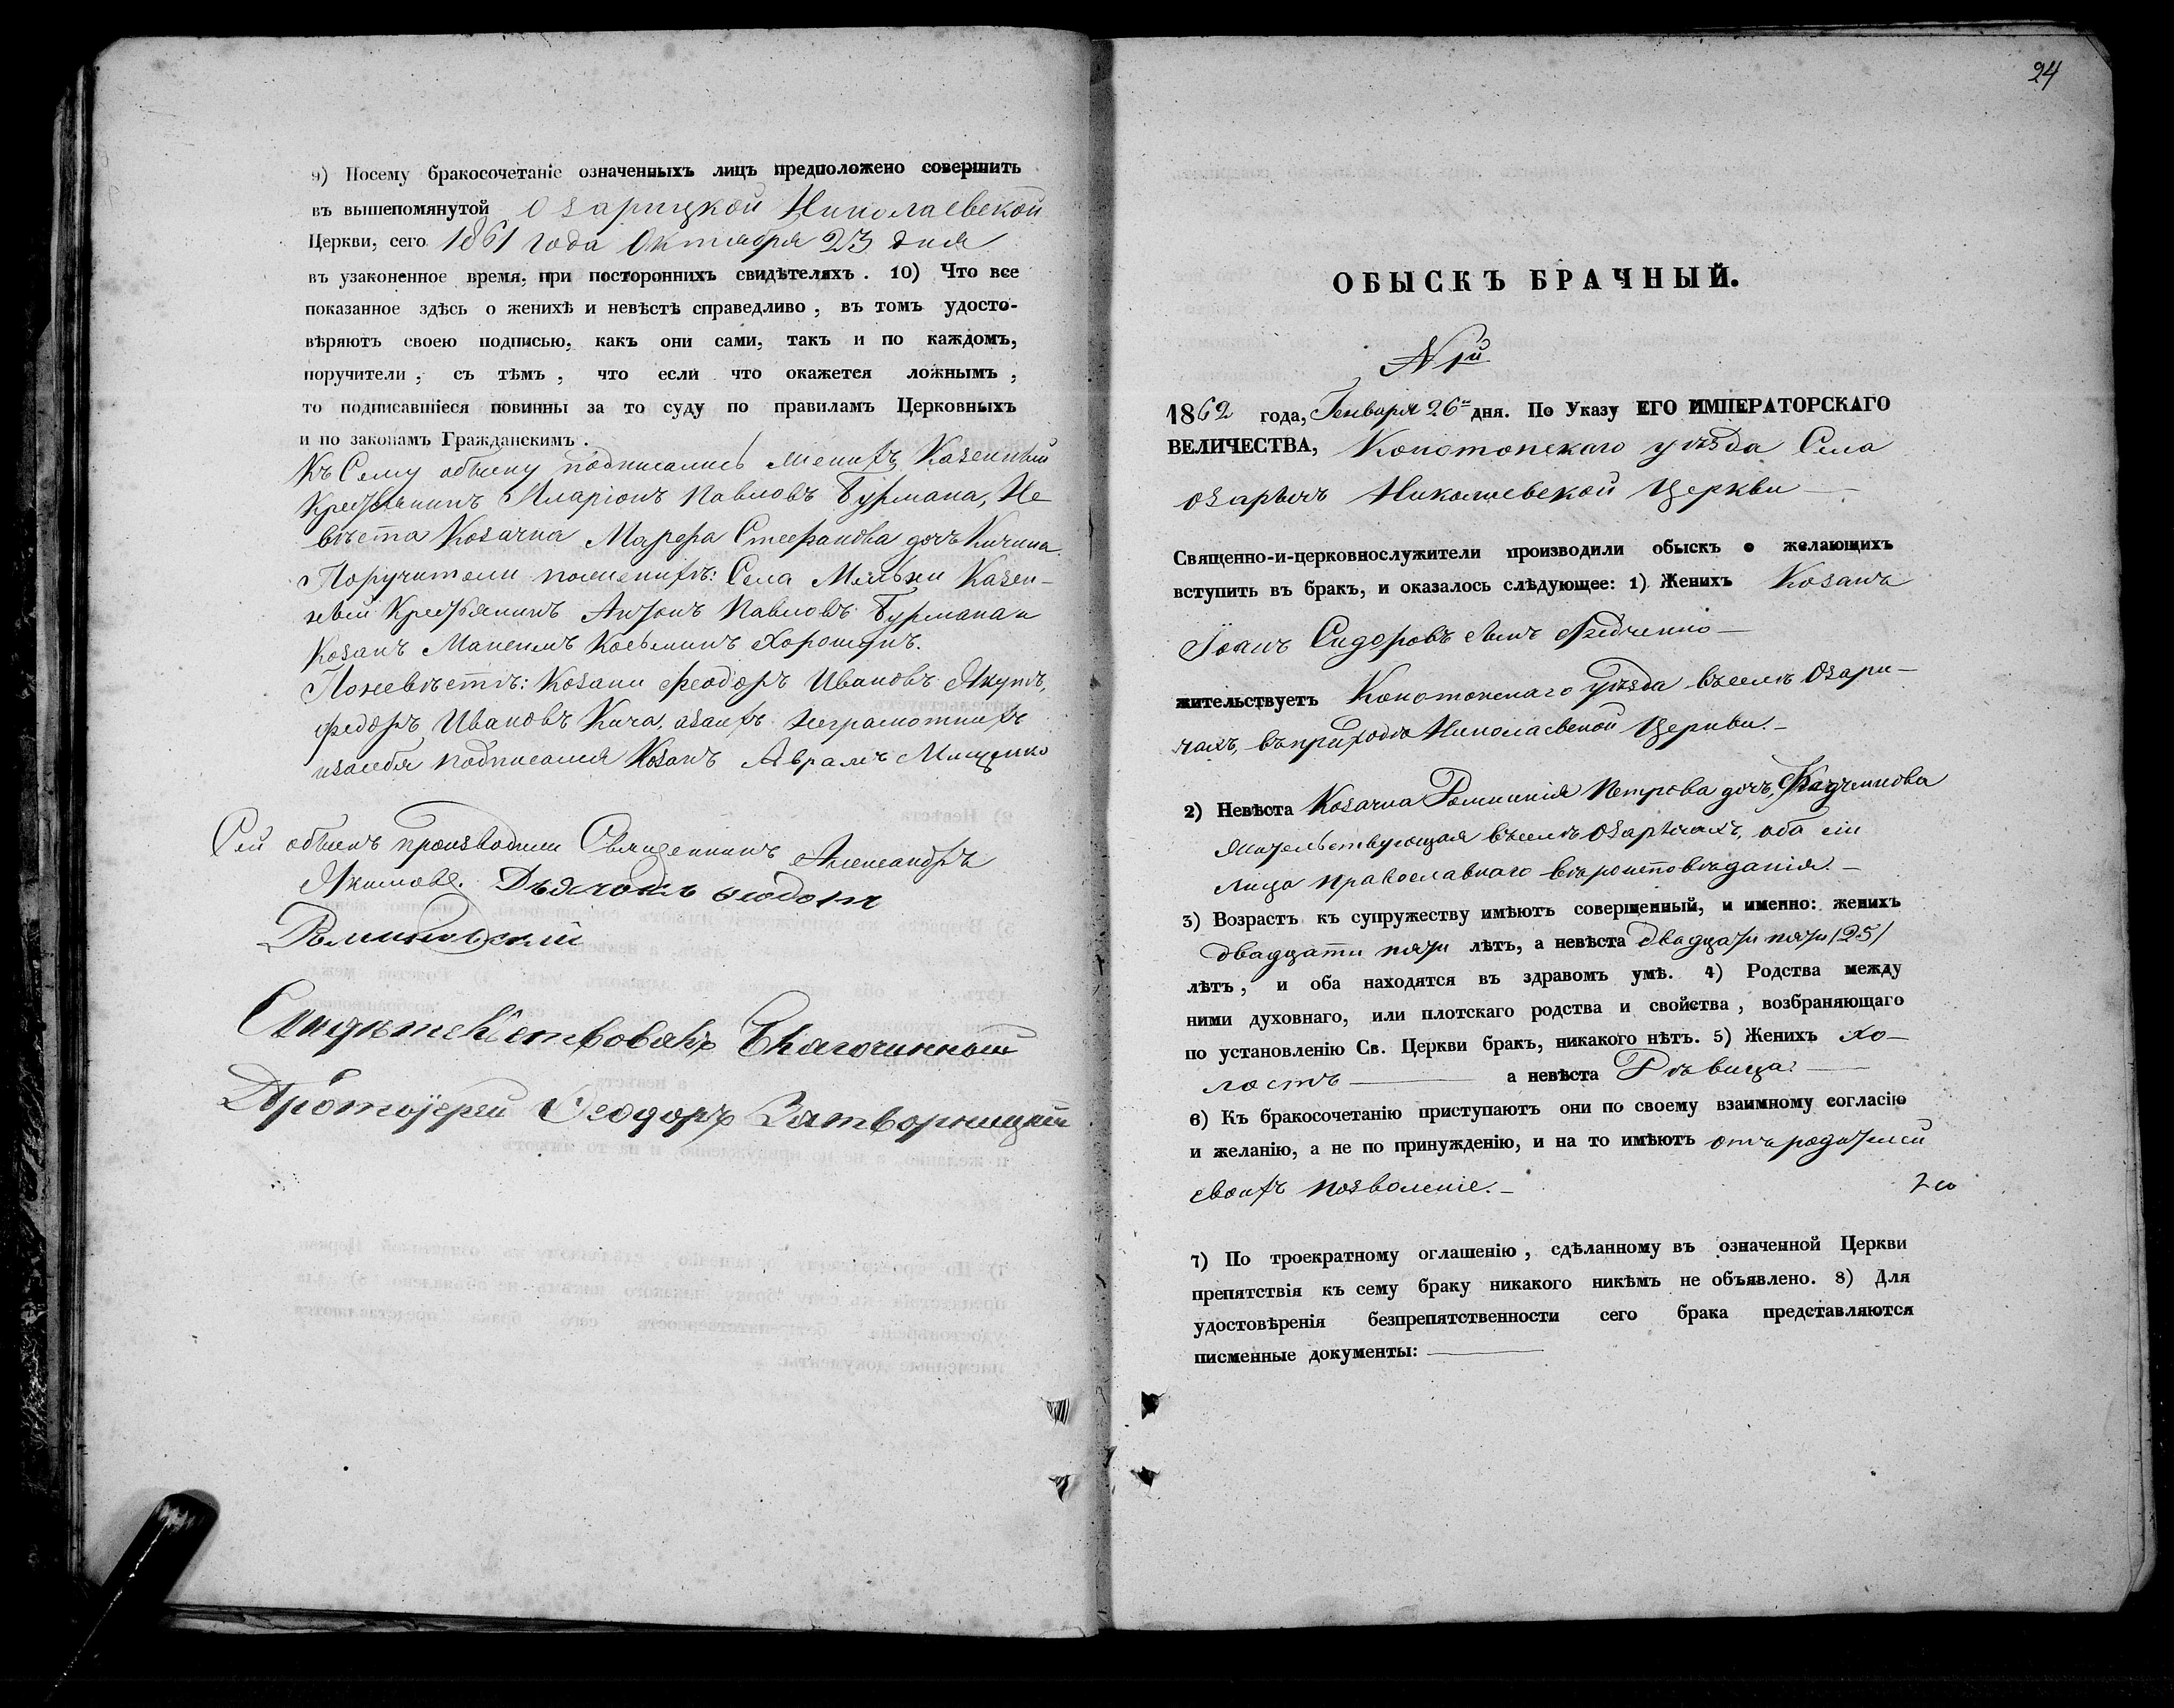 9) Посему бракосочетаніе означенныхъ лицъ предположено совершить
въ вышепомянутой Озарицкой Николаевской
Церкви, сего 1861 года Октября 23 дня
въ узаконенное время, при постороннихъ свидѣтеляхъ. 10) Что все
показанное здѣсь о женихѣ и невѣстѣ справедливо, въ томъ удосто-
вѣряютъ своею подписью, какъ они сами, такъ и по каждомъ,
поручители, съ тѣмъ, что если что окажется ложнымъ,
то подписавшіеся повинны за то суду по правиламъ Церковныхъ
и по законамъ Гражданскимъ.
Къ Сему обыску подписались Женихъ Казенный
Крестьянинъ Иларіонъ Павловъ Бурмака, Не
вѣста Козачка Марфа Стефанова дочь Кичина.
Поручители по женихѣ: Села Казен-
ный Крестьянинъ Антонъ Павловъ Бурмака и
Козакъ Косьминъ
По невѣстѣ: Козаки Феодоръ Ивановъ Якутъ,
Федоръ Ивановъ Кича, а за ихъ неграмотныхъ
и за себя подписался Козакъ Аврамъ Мищенко
Сей обыскъ производили Священникъ Александръ
Якимовъ. Дьячокъ
Свидѣтельствовалъ Благочинный
Протоіерей Феодоръ Затворницкій
24
ОБЫСКЪ БРАЧНЫЙ.
N 1й
1862 года, Генваря 26 дня. По Указу ЕГО ИМПЕРАТОРСКАГО
ВЕЛИЧЕСТВА, Конотопскаго уѣзда Села
Озаричъ Николаевской Церкви
Священно-и-церковнослужители производили обыскъ о желающихъ
вступить въ бракъ, и оказалось слѣдующее: 1) Женихъ Козакъ
Іоанъ Сидоровъ сынъ Федченко
жительствуетъ Конотопскаго уѣзда въ селѣ Озари-
чахъ, въ приходѣ Николаевской Церкви.
2) Невѣста Козачка Петрова дочь,
жительствующая въ селѣ Озаричахъ, оба сіи
лица православнаго вѣроисповѣданія.
3) Возрастъ къ супружеству имѣютъ совершенный, и именно: женихъ
двадцати пяти лѣтъ, а невѣста двадцати пяти /25/
лѣтъ, и оба находятся въ здравомъ умѣ. 4) Родства между
ними духовнаго, или плотскаго родства и свойства, возбраняющаго
по установленію Св. Церкви бракъ, никакого нѣтъ. 5) Женихъ хо-
лостъ а невѣста Дѣвица.
6) Къ бракосочетанію приступаютъ они по своему взаимному согласію
и желанію, а не по принужденію, и на то имѣютъ отъ родителей
своихъ позволеніе.
7) По троекратному оглашенію, сдѣланному въ означенной Церкви
препятствія къ сему браку никакого никѣмъ не объявлено. 8) Для
удостовѣренія безпрепятственности сего брака представляются
писменные документы: